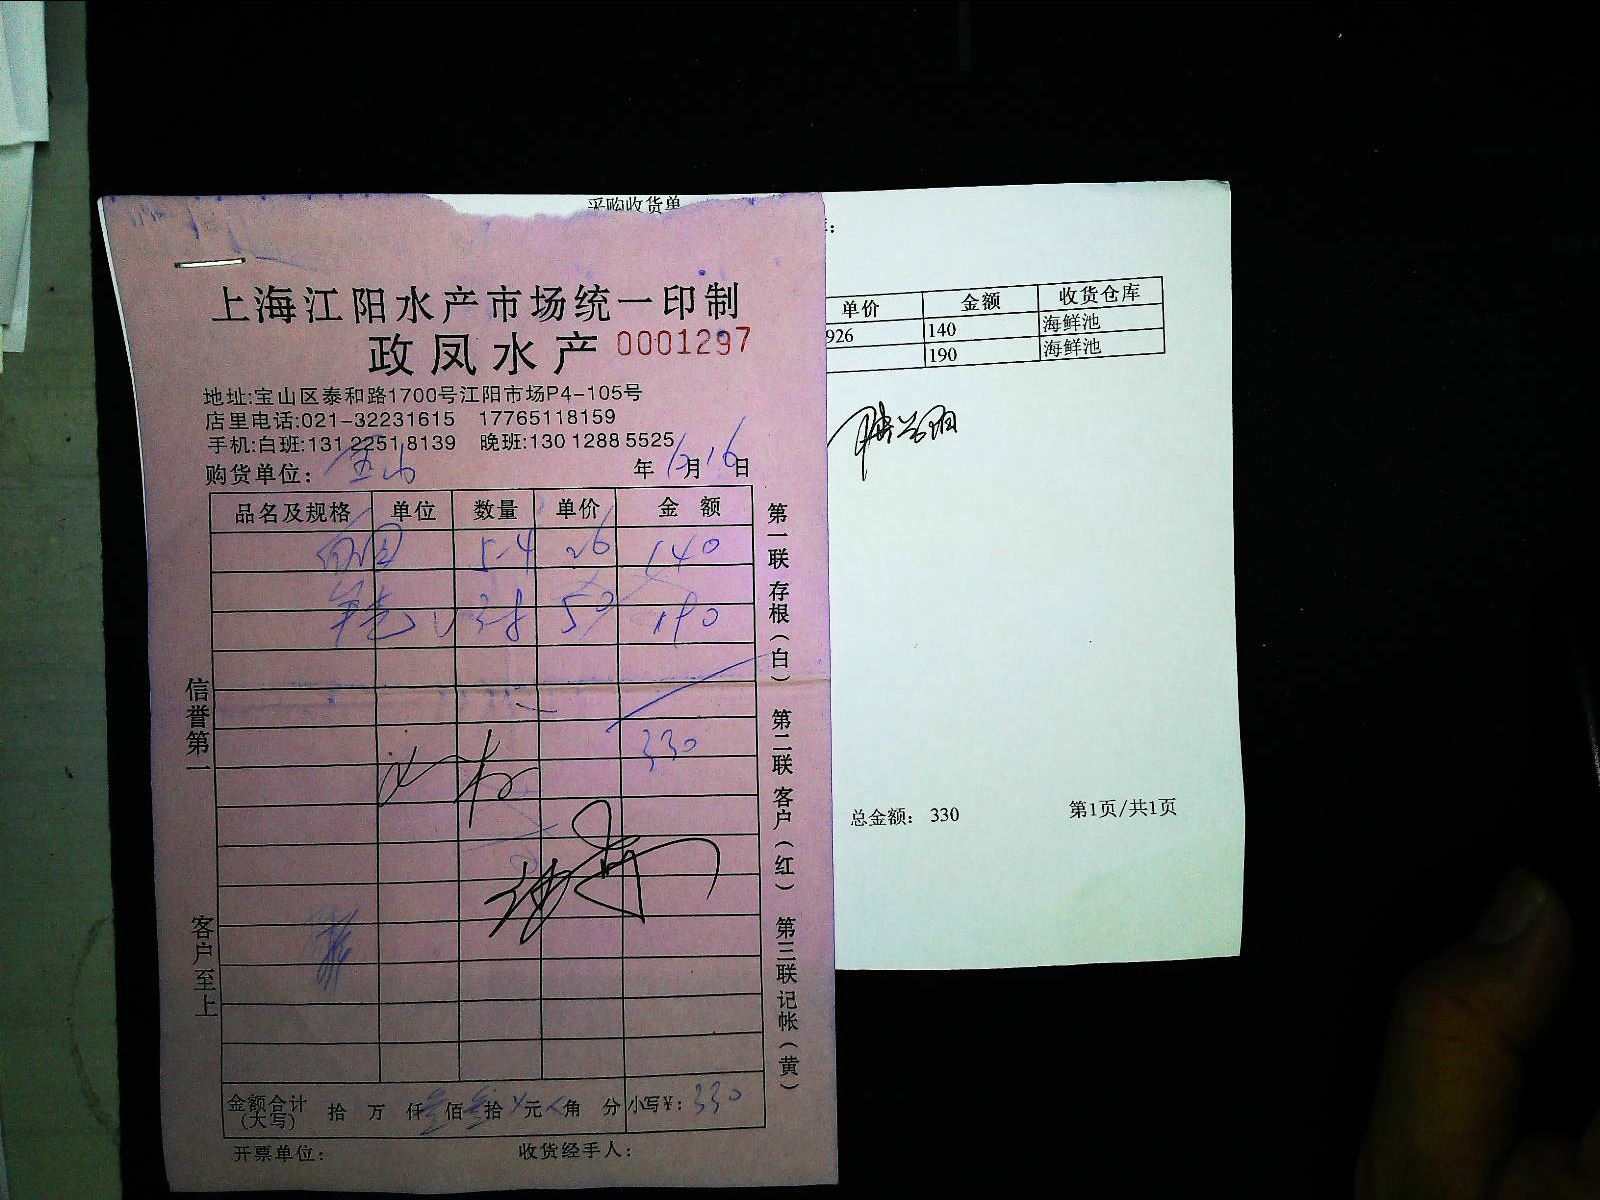 采购收货单
上海江阳水产市场统一印制
政凤水产 0001297
地址:宝山区泰和路1700号江阳市场P4-105号
店里电话:021-32231615 17765118159
手机:白班:131 2251 8139 晚班:130 1288 5525
购货单位:
年 月 16 日
品名及规格 单位 数量 单价 金额
5-4 26 140
38 50 190
330
金额合计(大写) 拾 万 仟 叁 佰 叁 拾 元 角 分 小写¥: 330
开票单位: 收货经手人:
信誉第一
客户至上
第一联存根(白) 第二联客户(红) 第三联记帐(黄)
单价 金额 收货仓库
926 140 海鲜池
190 海鲜池
总金额: 330 第1页/共1页